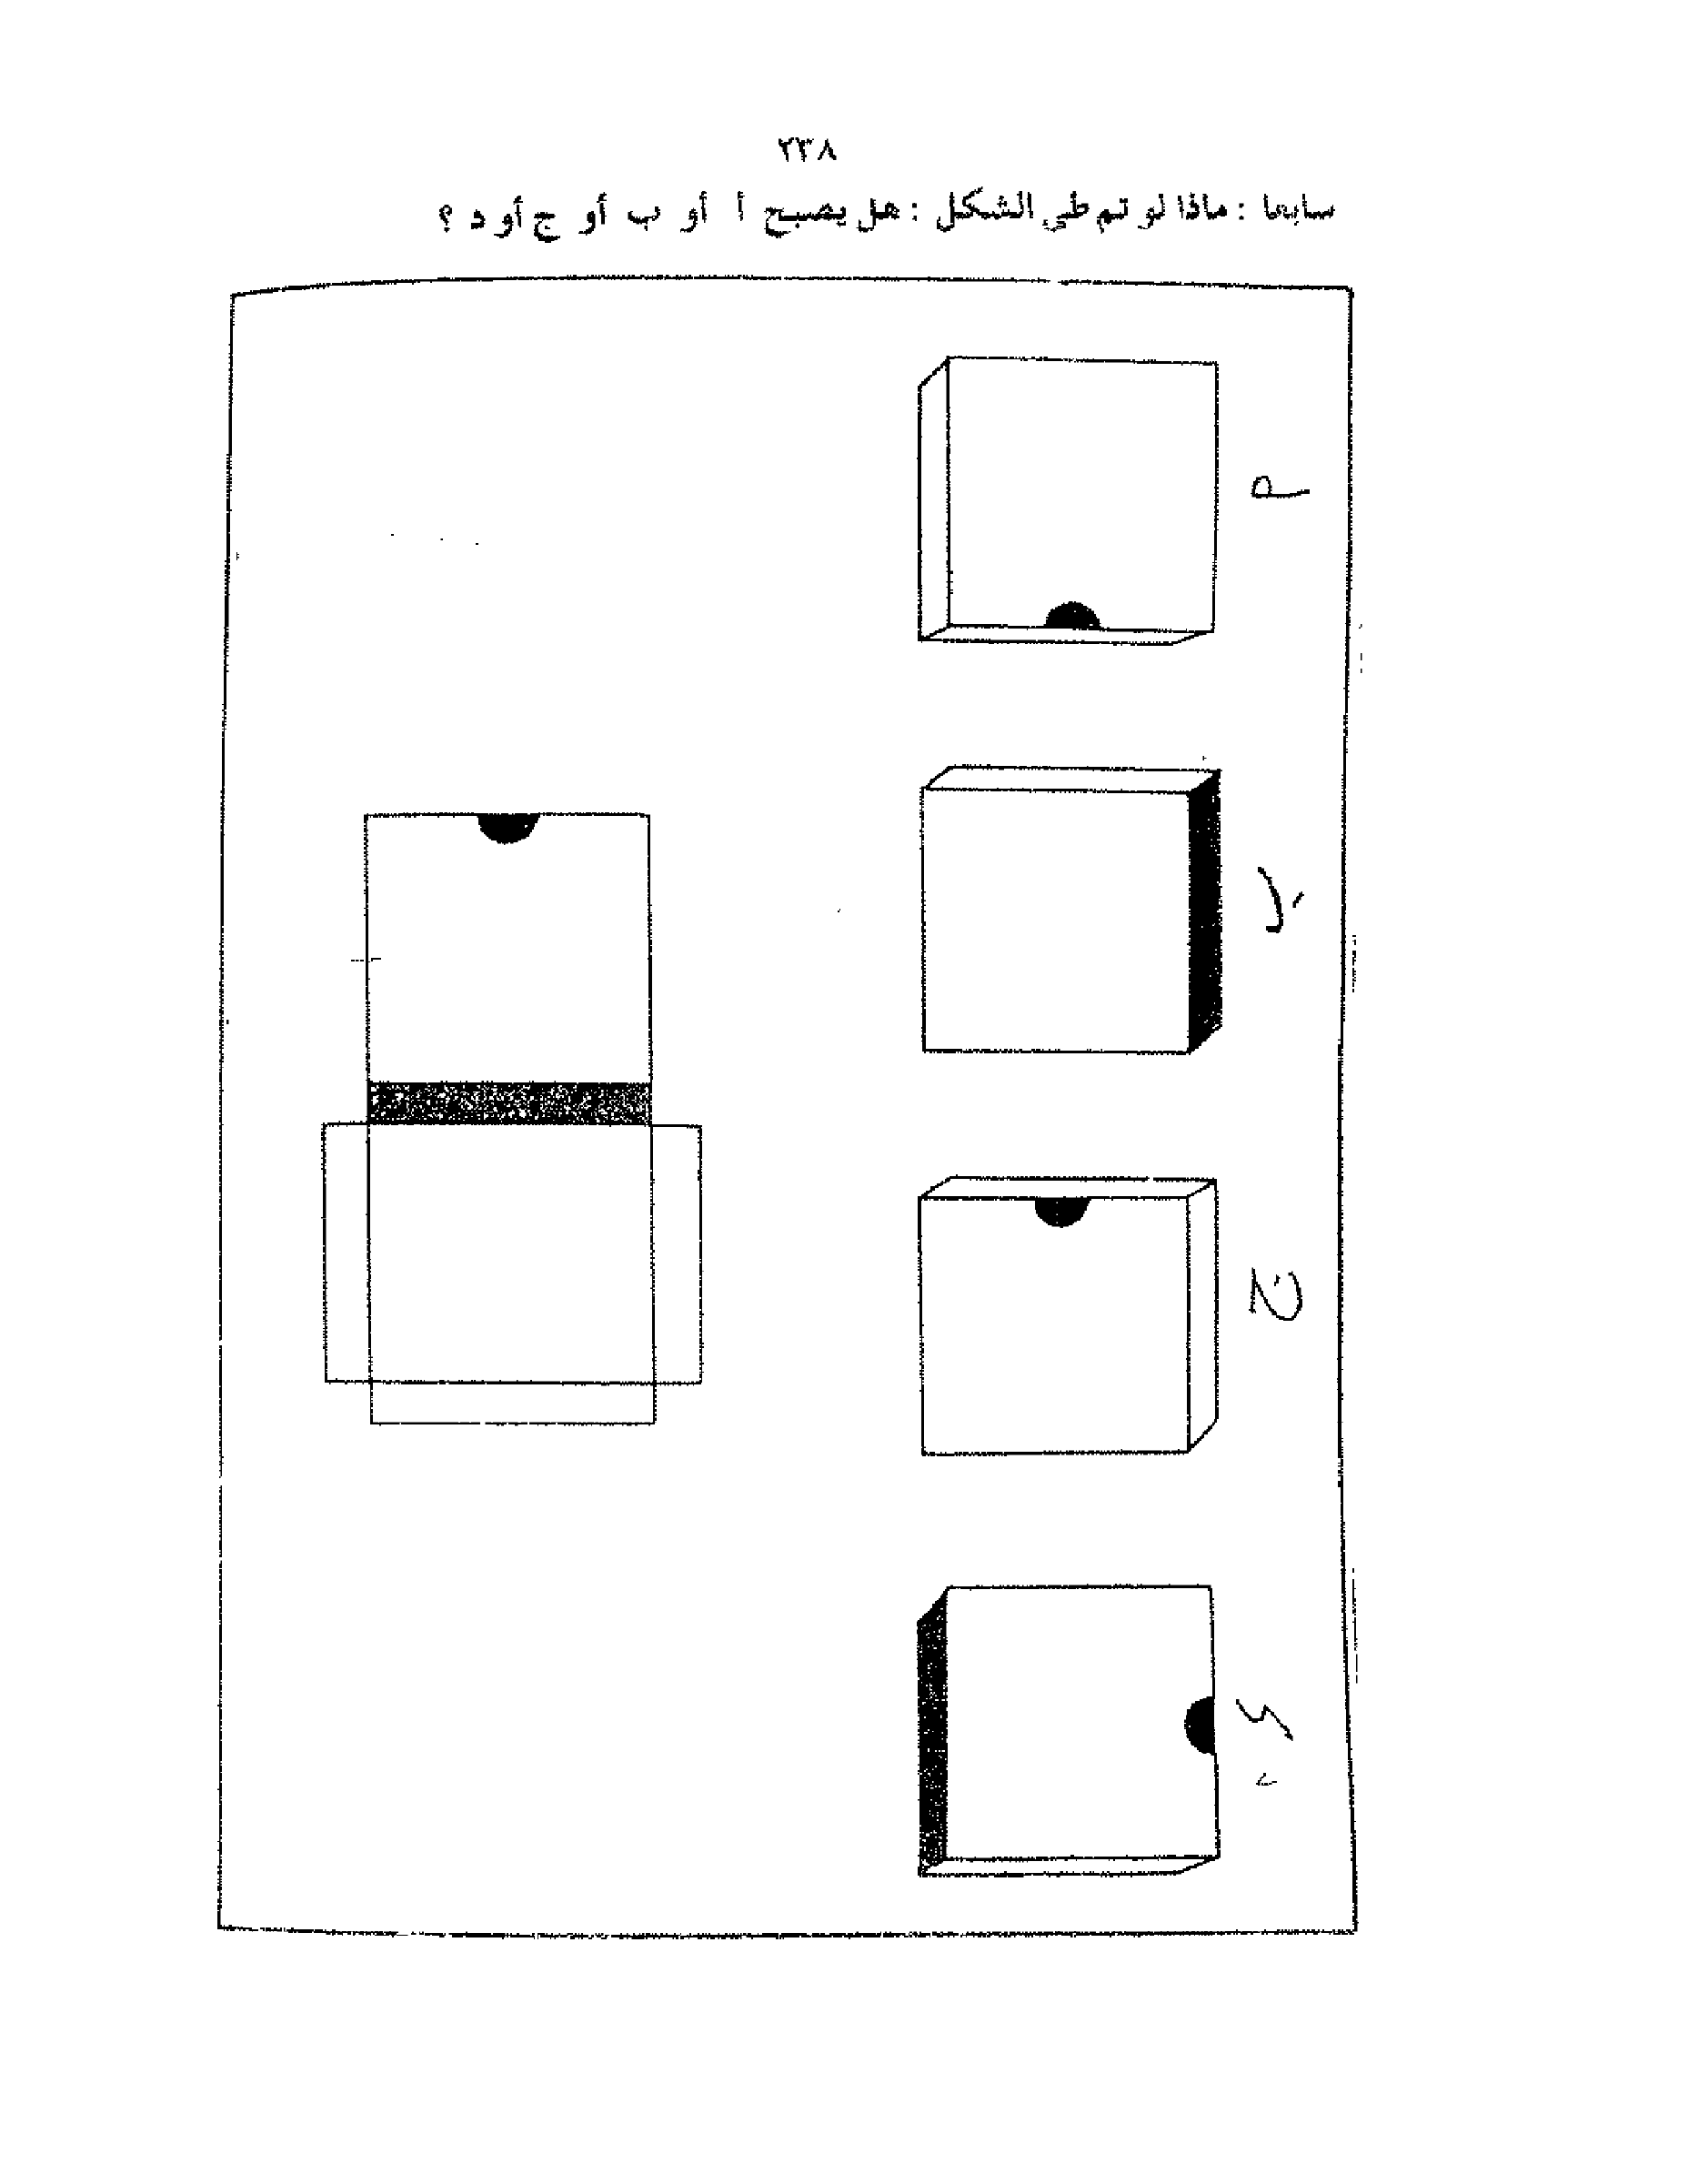 ٢٣٨
سابعا : ماذا لو تم طي الشكل : هل يصبح أ أو ب أو ج أو د ؟
أ
ب
ج
د